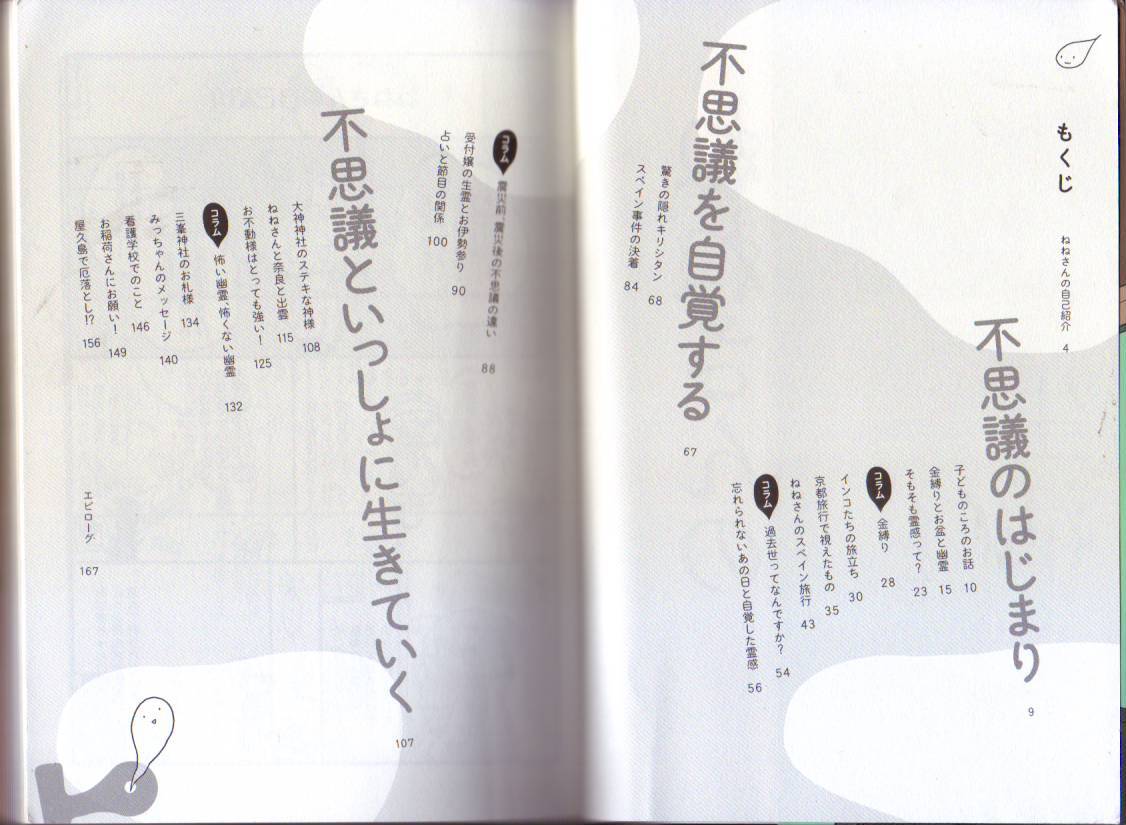 もくじ
ねねさんの自己紹介 4
不思議のはじまり 9
子どものころのお話 10
金縛りとお盆と幽霊 15
そもそも霊感って? 23
コラム 金縛り 28
インコたちの旅立ち 30
京都旅行で視えたもの 35
ねねさんのスペイン旅行 43
コラム 過去世ってなんですか? 54
忘れられないあの日と自覚した霊感 56
不思議を自覚する 67
驚きの隠れキリシタン 68
スペイン事件の決着 84
コラム 震災前、震災後の不思議の違い 88
受付嬢の生霊とお伊勢参り 90
占いと節目の関係 100
不思議といっしょに生きていく 107
大神神社のステキな神様 108
ねねさんと奈良と出雲 115
お不動様はとっても強い! 125
コラム 怖い幽霊、怖くない幽霊 132
三峯神社のお札様 134
みっちゃんのメッセージ 140
看護学校でのこと 146
お稲荷さんにお願い! 149
屋久島で厄落とし!? 156
エピローグ 167